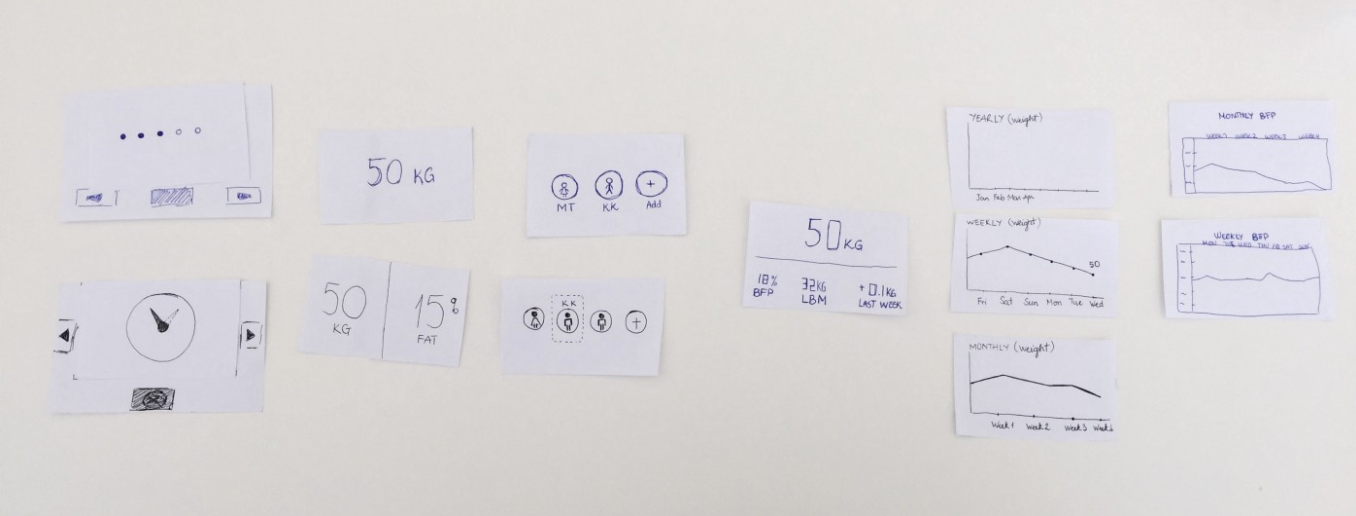 50 KG
50
KG
15%
FAT
MT KK Add
KK
50 KG
18% 32KG +0.1KG
BFP LBM LAST WEEK
YEARLY (weight)
Jan Feb Mar Apr
WEEKLY (weight)
50
Fri Sat Sun Mon Tue Wed
MONTHLY (weight)
Week 1 Week 2 Week 3
MONTHLY BFP
WEEK 1 WEEK 2 WEEK 3
WEEKLY BFP
MON TUE WED THU FRI SAT SUN